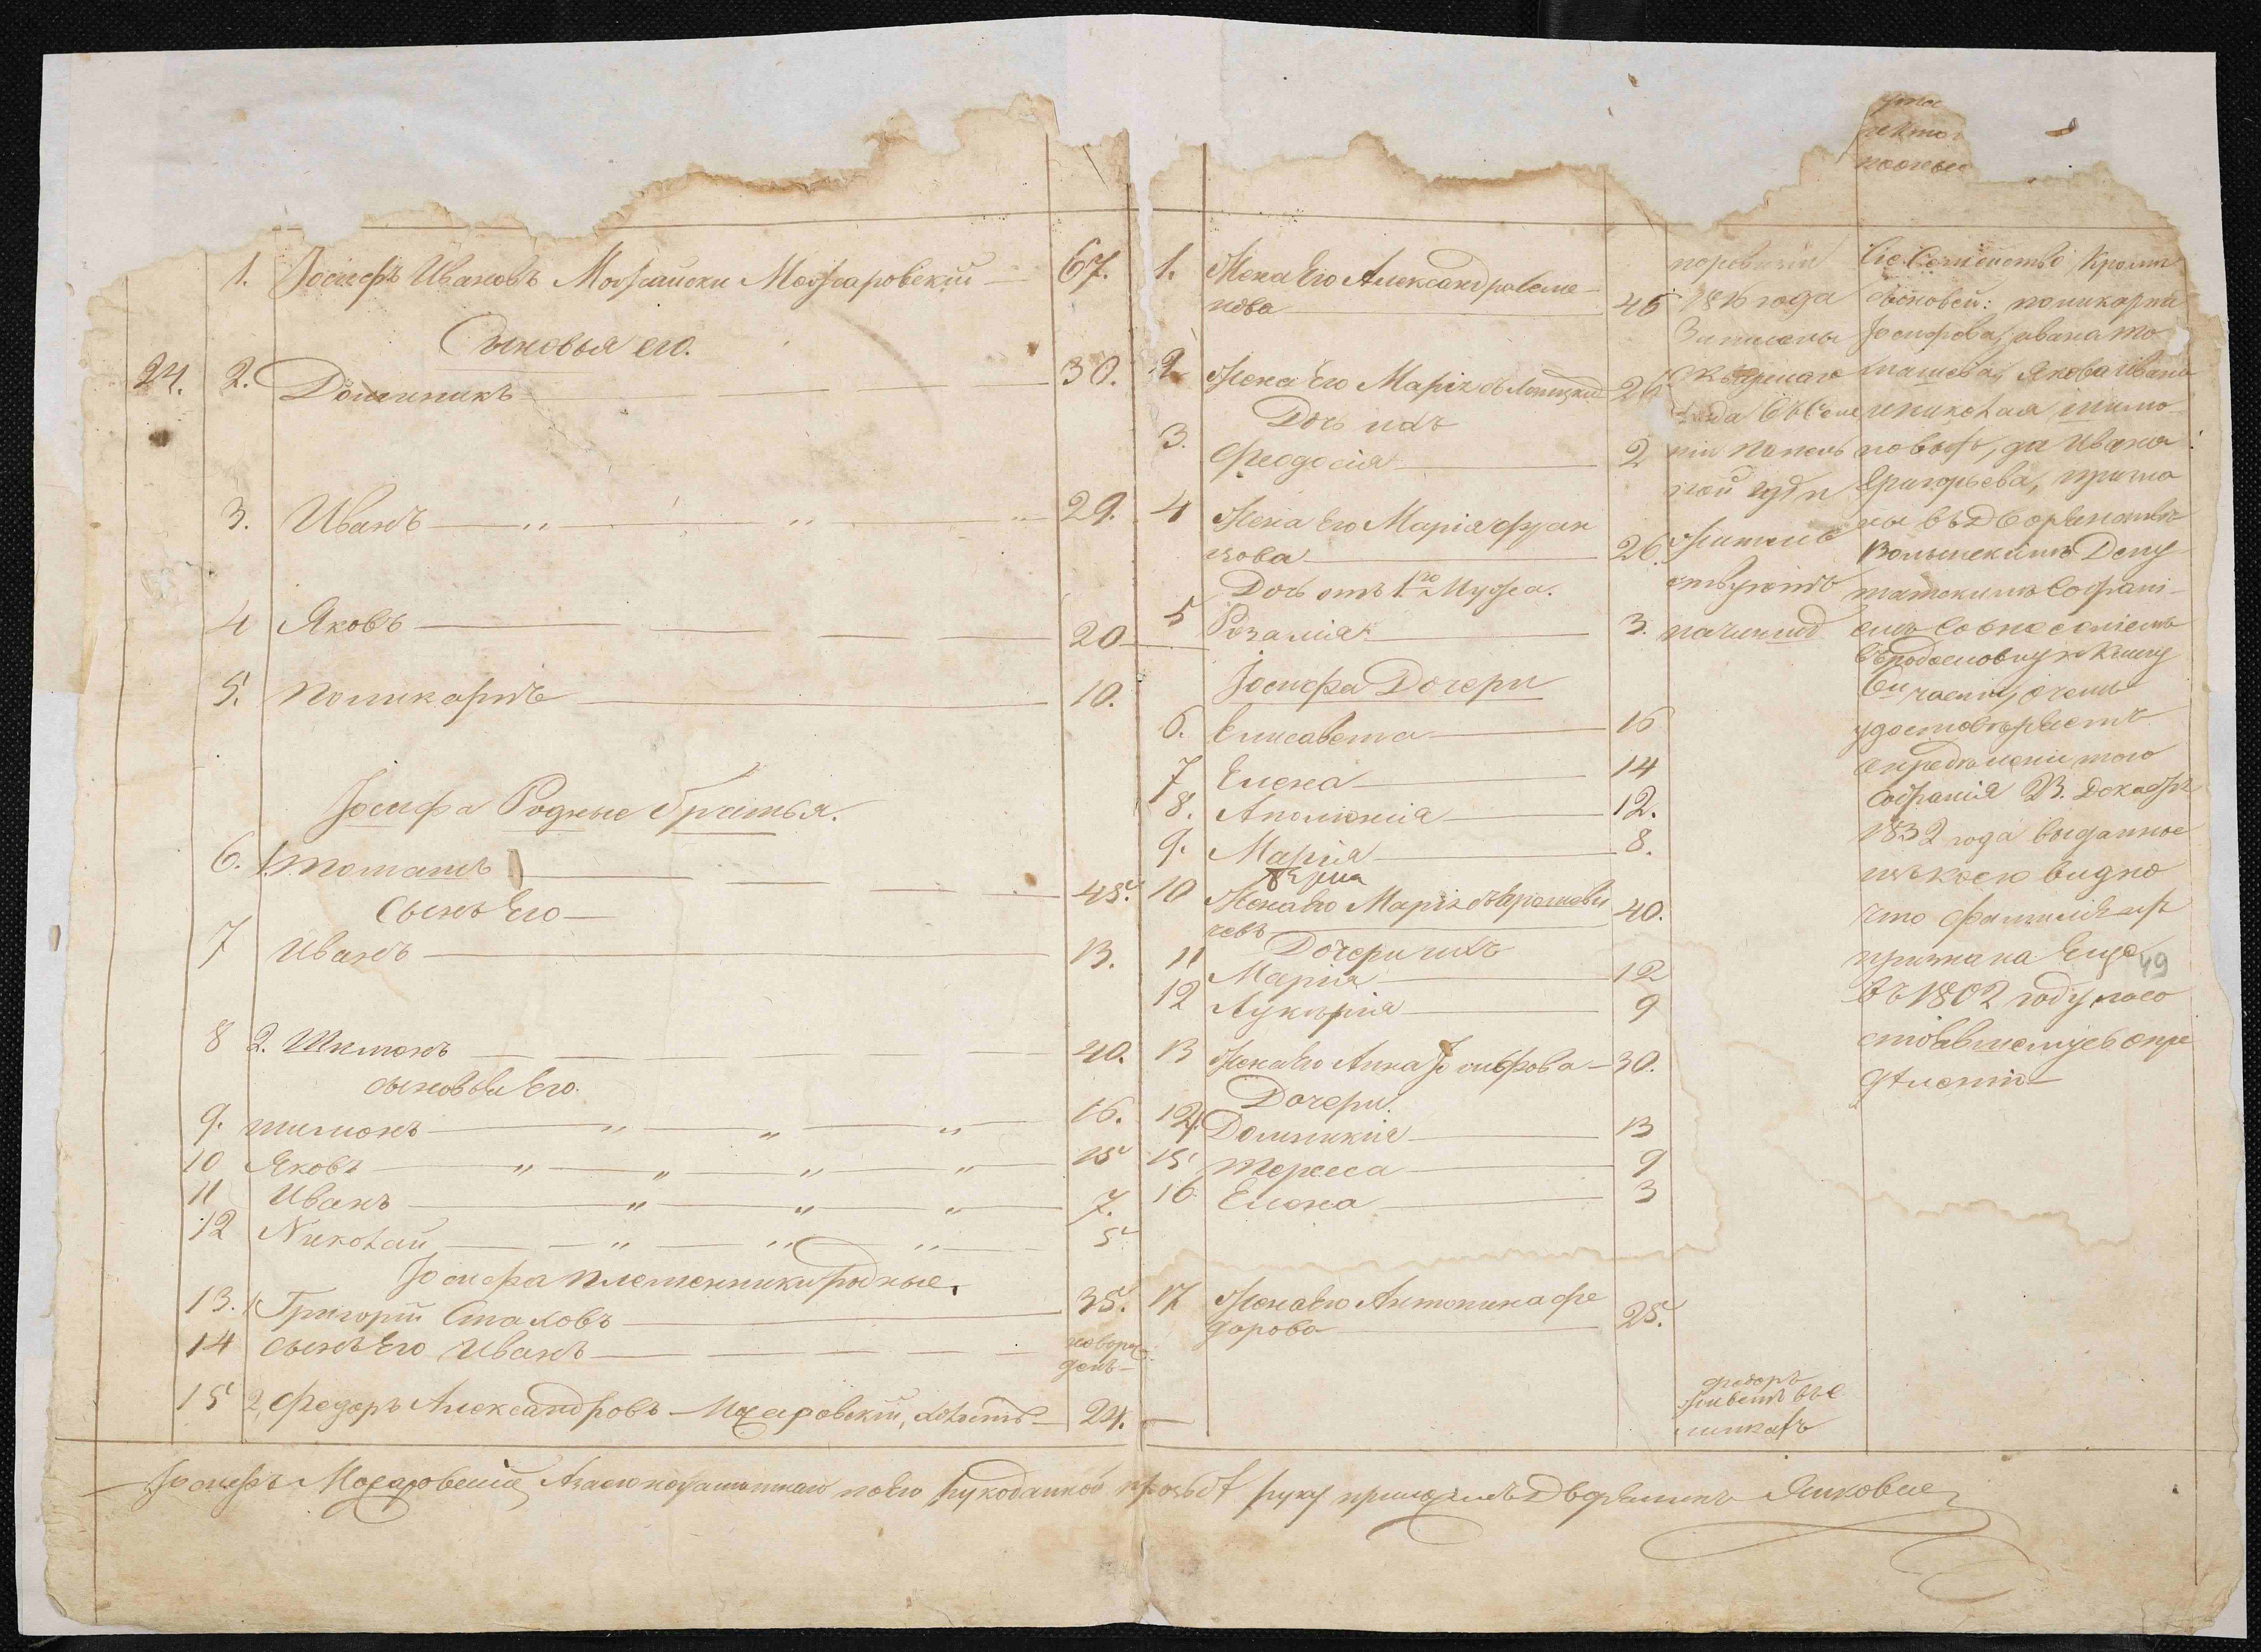 1. Іосифъ Ивановъ Можаиски Можаровскій — 67.
Сыновья его.
24. 2. Доминикъ — 30.
3. Иванъ — 29.
4 Яковъ — 20
5. Поликарпъ — 10.
Іосифа Родные братья.
6. 1. Томашъ — 45.
Сынъ Его —
7 Иванъ — 13.
8 2. Шимонъ — 40.
сыновьи Его.
9. шимонъ — 16.
10 Яковъ — 15
11 Иванъ — 7.
12 Николай — 5
Іосифа племенники родные.
13. 1 Григорій — 35.
14 сынъ Его Иванъ — новорож
денъ —
15 2, Федоръ Александровъ Можаровскій, — 24.
1. Жена Его Александра Семе
нова — 46
2 Жена Его Марія — 26
Дочь ихъ
3. Феодосія — 2
4 Жена Его Марія Фран
цова — 26.
Дочь отъ 1го Мужа.
5 Розалія — 3.
Іосифа Дочери
6. Елисавета — 16
7 Елена — 14
8. Аполонія — 12.
9. Марія — 8.
10 Жена Его Марія
чевъ — 40.
Дочери ихъ
11 Марія — 12
12 Лукерія — 9
13 Жена Его Анна Іосифова — 30.
Дочери.
14. Доминикія — 13
15 Тереса — 9
16 Елена — 3
17 Жена Его Антонина Фе
дорова — 25.
по ревизіи
1816 года
Записаны
жительс
ствуютъ
Федоръ
живетъ въ
Сіе Семейство кроме
сыновей: поликарпа
Іосифова, ивана то
машова, Якова Ивана
и николая шимо
новыхъ, да Ивана
Григорьева, призна
ны въ Дворянствѣ
Волынскимъ Депу
татскимъ Собрані
емъ со внесеніемъ
въ родословную Книгу
часть, о чемъ
удостовѣряетъ
опредѣленіе того
Собранія 23. Декабря
1832 года выданное
изъ коего видно
что фамилія
признана Еще
въ 1802 году, по со
стоявшемуся опре
дѣленію —
49
Іосифъ Можаровскій, А за его неграмотнаго по его рукоданной прозьбѣ руку приложилъ Дворянинъ